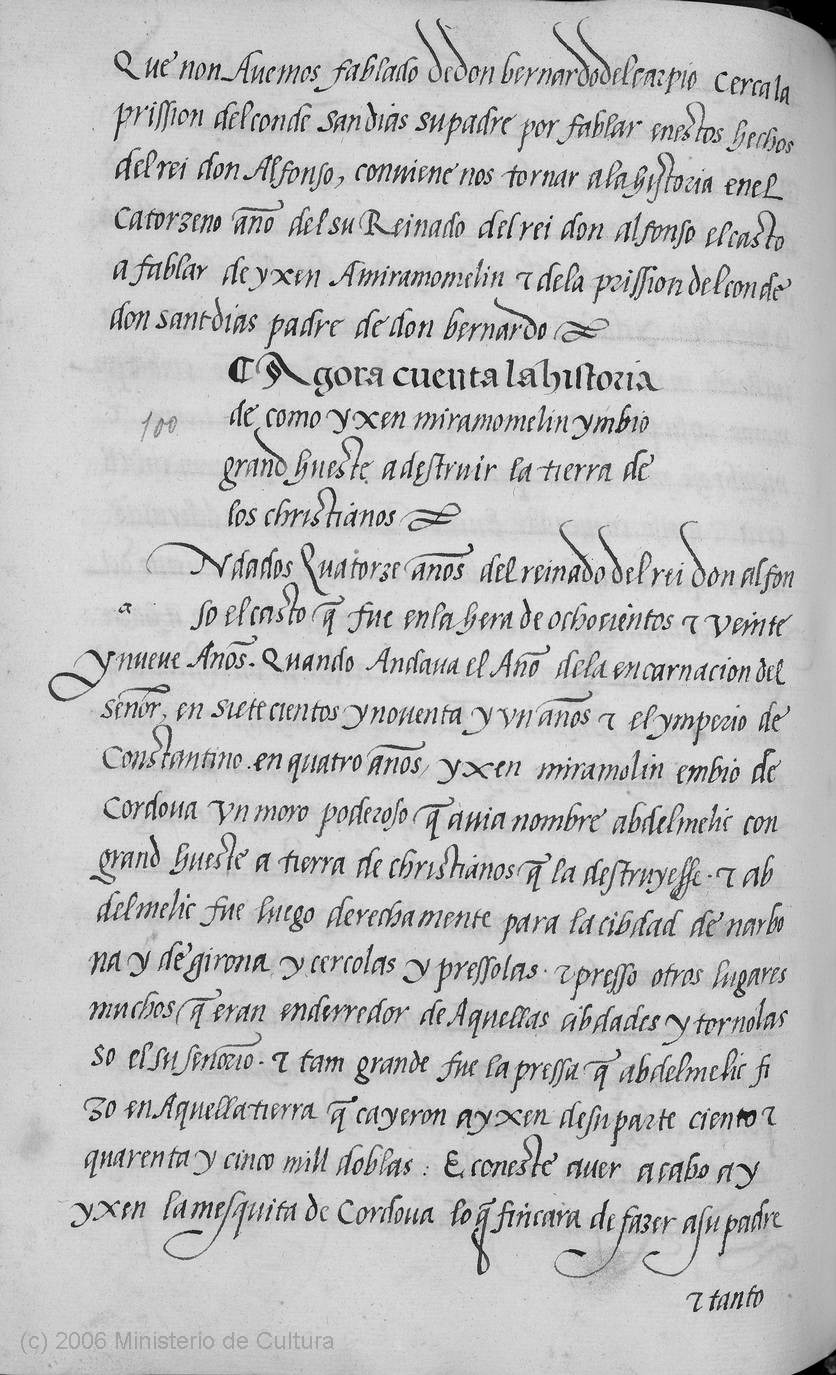 Que non Auemos fablado de don bernardo del carpio cerca la
prission del conde sandias su padre por fablar en estos hechos
del rei don Alfonso, conuiene nos tornar a la historia en el
catorzeno año del su Reinado del rei don alfonso el casto
a fablar de yxen Amiramomelin ⁊ de la prission del conde
don sant dias padre de don bernardo
¶ Agora cuenta la historia
de como yxen miramomelin ymbio
100
grand hueste a destruir la tierra de
los christianos
Ndados Quatorze años del reinado del rei don alfon
a
so el casto q̃ fue en la hera de ochocientos ⁊ veinte
y nueve Años. Quando Andaua el Año de la encarnacion del
señor, en sietecientos y nouenta y vn años ⁊ el ymperio de
Constantino. en quatro años, yxen miramolin embio de
Cordoua vn moro poderoso q̃ auia nombre abdelmelic con
grand hueste a tierra de christianos q̃ la destruyesse. ⁊ ab
delmelic fue luego derechamente para la cibdad de narbo
na y de girona y cercolas y pressolas. ⁊ presso otros lugares
muchos q̃ eran enderredor de Aquellas cibdades y tornolas
so el su señorio. ⁊ tam grande fue la pressa q̃ abdelmelic fi
zo en Aquella tierra q̃ cayeron a yxen de su parte ciento ⁊
quarenta y cinco mill doblas : E con este auer acabo ay
yxen la mesquita de Cordoua lo q̃ fincara de fazer a su padre
⁊ tanto
(c) 2006 Ministerio de Cultura